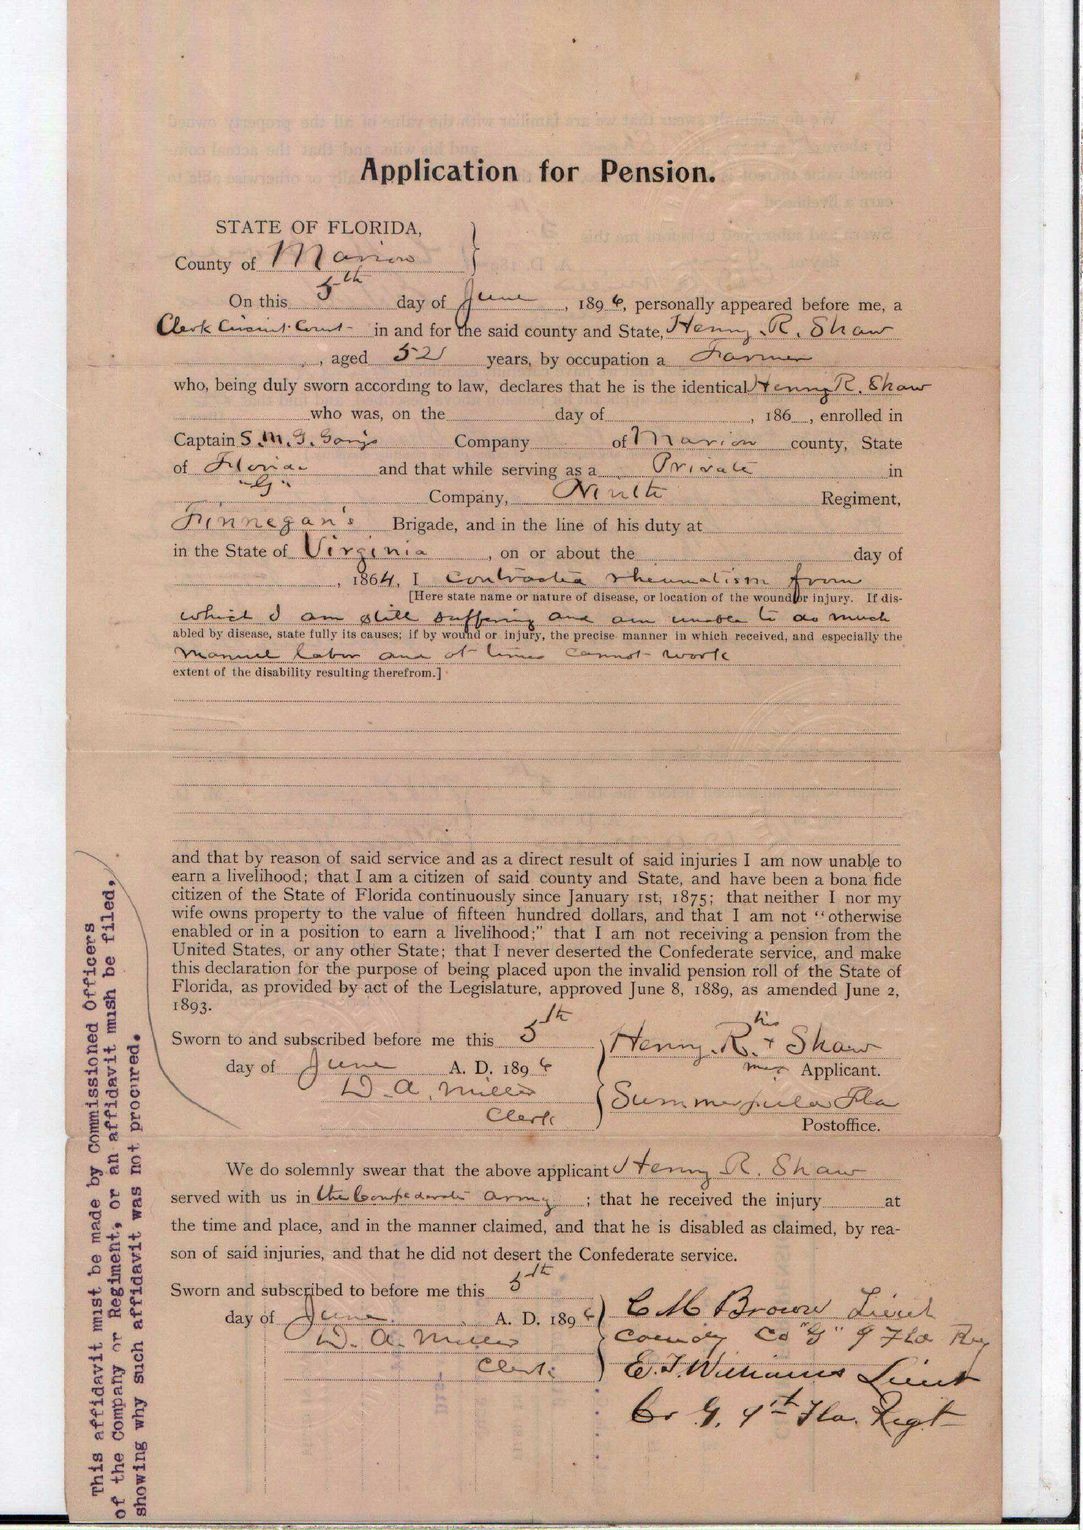 Application for Pension.
STATE OF FLORIDA,
County of Marion
On this 5th day of June, 1896, personally appeared before me, a
Clerk Circuit Court in and for the said county and State, Henry R. Shaw
, aged 52 years, by occupation a Farmer
who, being duly sworn according to law, declares that he is the identical Henry R. Shaw
who was, on the day of , 186 , enrolled in
Captain S. M. G. Company of Marion county, State
of Florida and that while serving as a Private in
"G" Company, Ninth Regiment,
Finnegan's Brigade, and in the line of his duty at
in the State of Virginia, on or about the day of
, 1864, I contracted rheumatism from
[Here state name or nature of disease, or location of the wound or injury. If dis-
which I am still suffering and am unable to do much
abled by disease, state fully its causes; if by wound or injury, the precise manner in which received, and especially the
manuel labor and at times cannot work
extent of the disability resulting therefrom.]
and that by reason of said service and as a direct result of said injuries I am now unable to
earn a livelihood; that I am a citizen of said county and State, and have been a bona fide
citizen of the State of Florida continuously since January 1st, 1875; that neither I nor my
wife owns property to the value of fifteen hundred dollars, and that I am not "otherwise
enabled or in a position to earn a livelihood;" that I am not receiving a pension from the
United States, or any other State; that I never deserted the Confederate service, and make
this declaration for the purpose of being placed upon the invalid pension roll of the State of
Florida, as provided by act of the Legislature, approved June 8, 1889, as amended June 2,
1893.
Sworn to and subscribed before me this 5th
day of June A. D. 1896
D. A. Miller
Clerk
his
Henry. R. + Shaw
mark Applicant.
Summerfield Fla
Postoffice.
We do solemnly swear that the above applicant Henry R. Shaw
served with us in the Confederate army; that he received the injury at
the time and place, and in the manner claimed, and that he is disabled as claimed, by rea-
son of said injuries, and that he did not desert the Confederate service.
Sworn and subscribed to before me this 5th
day of June A. D. 1896
D. A. Miller
Clerk
C M Brown Lieut
Co "G" 9 Fla Reg
E. T. Williams Lieut
Co G. 9th Fla. Regt
This affidavit must be made by Commissioned Officers
of the Company or Regiment, or an affidavit mush be filed,
showing why such affidavit was not procured.